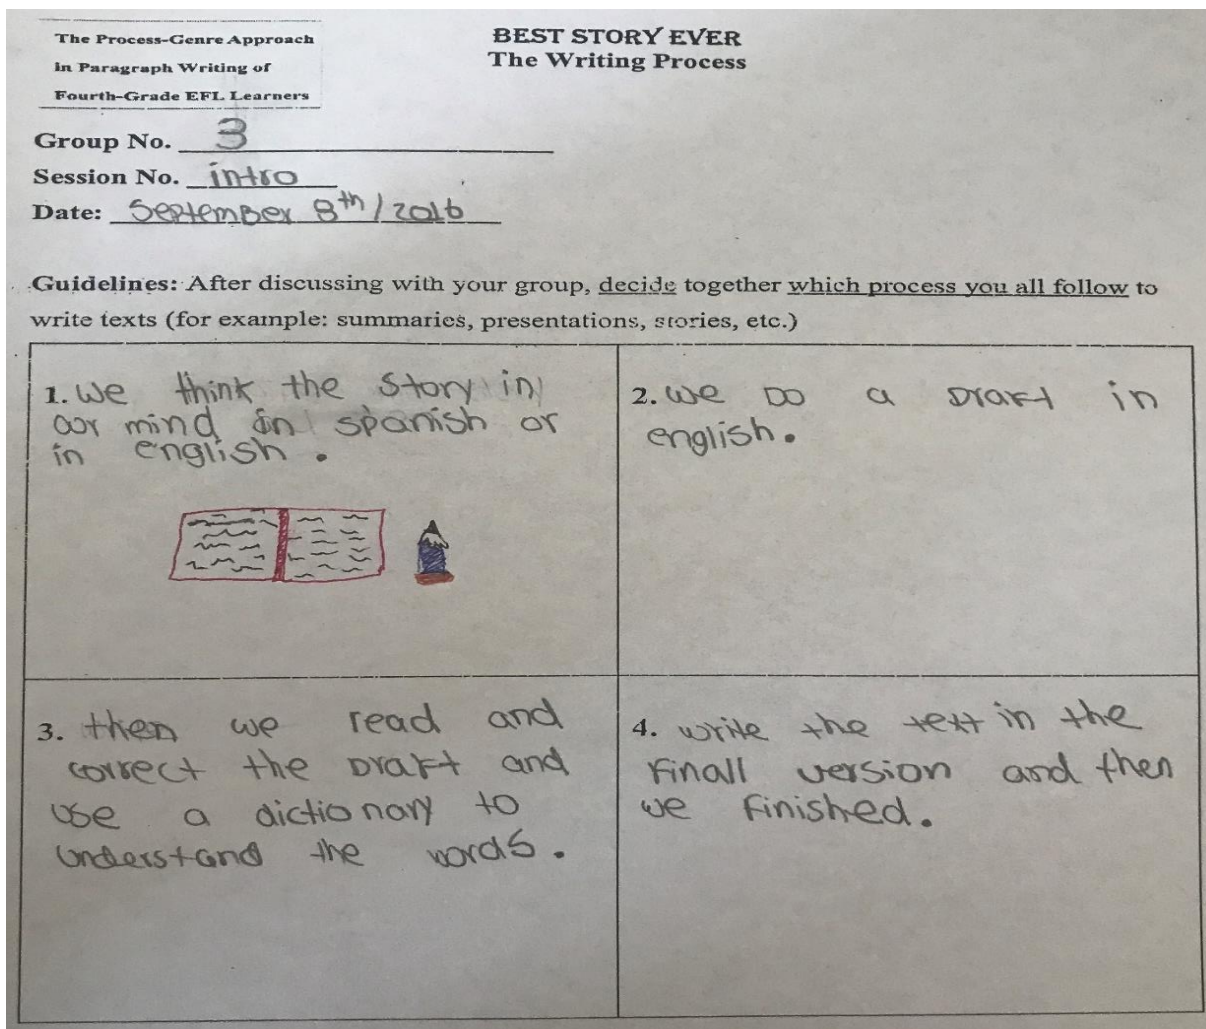 The Process-Genre Approach
in Paragraph Writing of
Fourth-Grade EFL Learners
BEST STORY EVER
The Writing Process
Group No. 3
Session No. intro
Date: September 8th / 2016
Guidelines: After discussing with your group, decide together which process you all follow to
write texts (for example: summaries, presentations, stories, etc.)
1. We think the story in
our mind in spanish or
in english.
2. We Do a Draft in
english.
3. then we read and
correct the Draft and
use a dictionary to
understand the words.
4. write the text in the
Finall version and then
we finished.